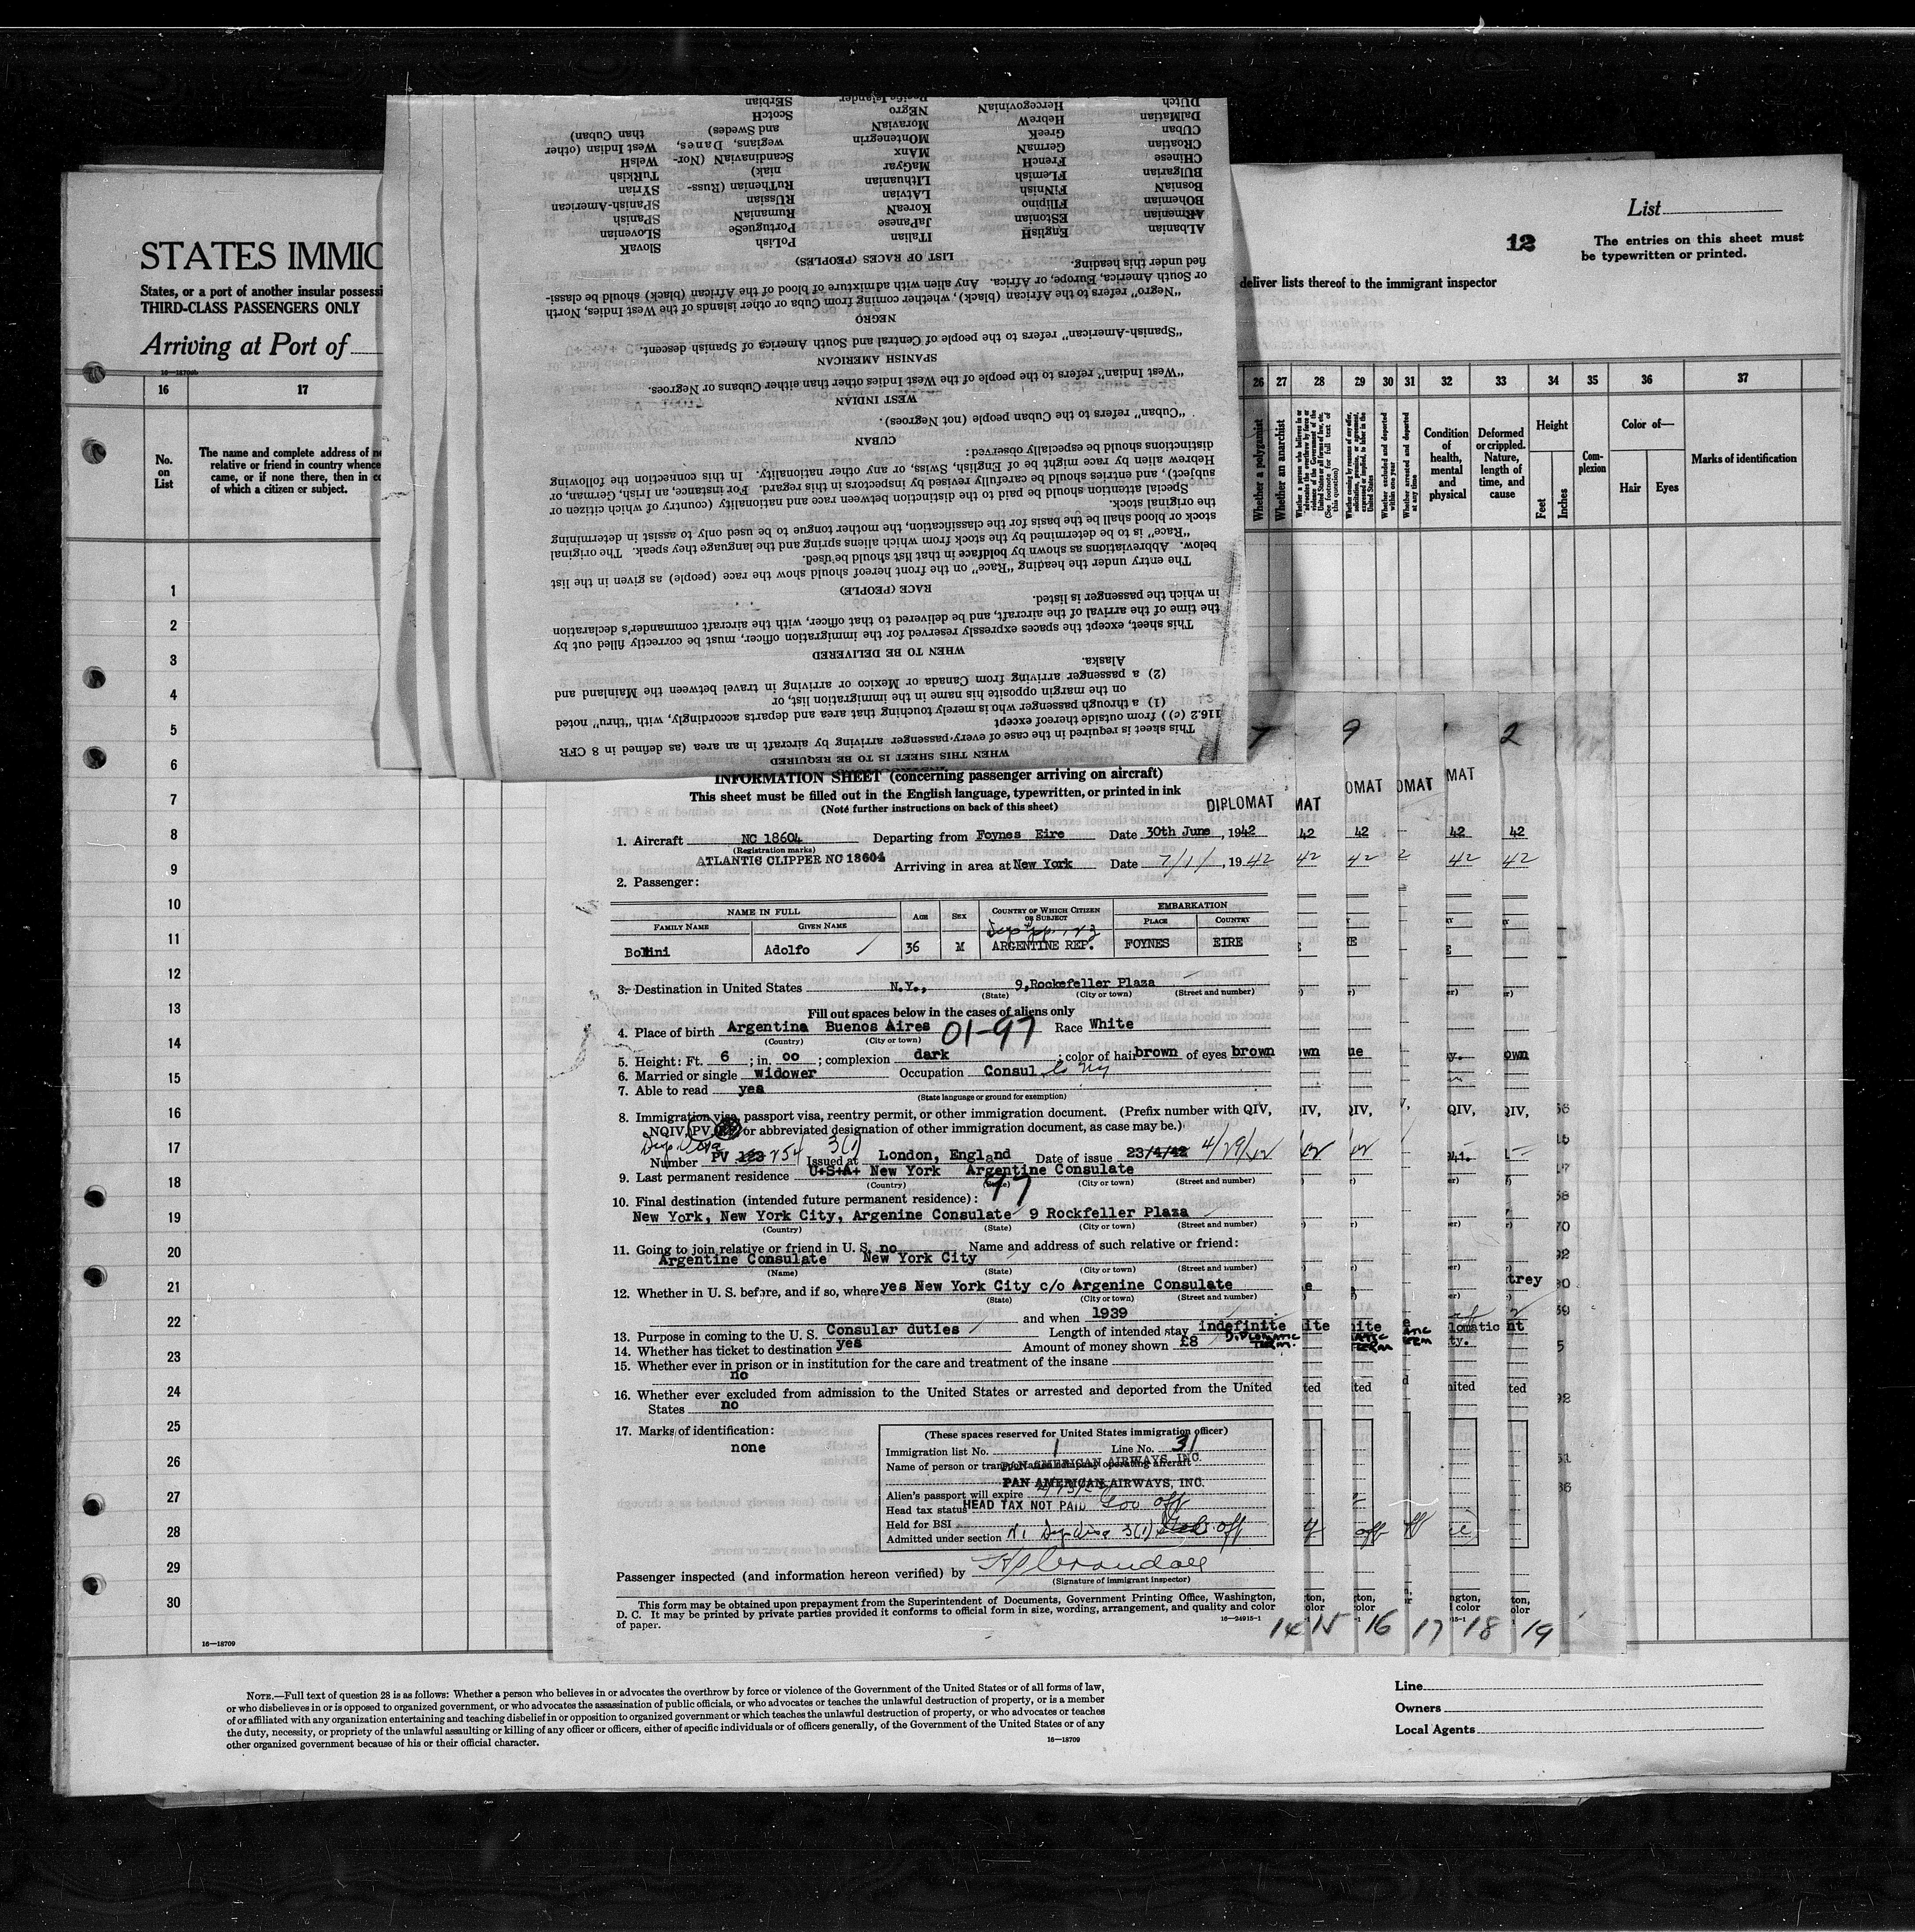 STATES IMMIC
States, or a port of another insular possessi
THIRD-CLASS PASSENGERS ONLY
Arriving at Port of
List
12
The entries on this sheet must
be typewritten or printed.
deliver lists thereof to the immigrant inspector
16 17
26 27 28 29 30 31 32 33 34 35 36 37
No. on List
The name and complete address of
relative or friend in country whence
came, or if none there, then in
of which a citizen or subject.
Whether a polygamist
Whether an anarchist
Condition of health, mental and physical
Deformed or crippled. Nature, length of time, and cause
Height
Feet
Inches
Complexion
Color of—
Hair
Eyes
Marks of identification
1
2
3
4
5
6
7
8
9
10
11
12
13
14
15
16
17
18
19
20
21
22
23
24
25
26
27
28
29
30
16—18709
WHEN THIS SHEET IS TO BE REQUIRED
This sheet is required in the case of every passenger arriving by aircraft in an area (as defined in 8 CFR
116.2 (c)) from outside thereof except
(1) a through passenger who is merely touching that area and departs accordingly, with "thru" noted
on the margin opposite his name in the immigration list, or
(2) a passenger arriving from Canada or Mexico or arriving in travel between the Mainland and
Alaska.
WHEN TO BE DELIVERED
This sheet, except the spaces expressly reserved for the immigration officer, must be correctly filled out by
the time of the arrival of the aircraft, and be delivered to that officer, with the aircraft commander's declaration
in which the passenger is listed.
RACE (PEOPLE)
The entry under the heading "Race" on the front hereof should show the race (people) as given in the list
below. Abbreviations as shown by boldface in that list should be used.
"Race" is to be determined by the stock from which aliens spring and the language they speak. The original
stock or blood shall be the basis for the classification, the mother tongue to be used only to assist in determining
the original stock.
Special attention should be paid to the distinction between race and nationality (country of which citizen or
subject), and entries should be carefully revised by inspectors in this regard. For instance, an Irish, German, or
Hebrew alien by race might be of English, Swiss, or any other nationality. In this connection the following
distinctions should be especially observed:
CUBAN
"Cuban" refers to the Cuban people (not Negroes).
WEST INDIAN
"West Indian" refers to the people of the West Indies other than either Cubans or Negroes.
SPANISH AMERICAN
"Spanish-American" refers to the people of Central and South America of Spanish descent.
NEGRO
"Negro" refers to the African (black), whether coming from Cuba or other islands of the West Indies, North
or South America, Europe, or Africa. Any alien with admixture of blood of the African (black) should be classi-
fied under this heading.
LIST OF RACES (PEOPLES)
ALbanian EnglisH ITalian PoLish SlovaK
ARmenian EStonian JaPanesE PortugueSe SLOvenian
BOhemian FIlipino KoreaN RumaniaN SPanish
BosniaN FiNnish LAtvian RUssian SPanish-American
BUlgarian FLemish LIthuanian RuThenian (Russ- SYrian
CHinese FrencH MaGyar niak) TuRkish
CRoatian GermaN MAnx ScandinaviaN (Nor- WelsH
CUban GreeK MOntenegrin wegians, Danes, West Indian (other
DalMatian HebreW MoraviaN and Swedes) than Cuban)
DUtch HercegoviniaN NEgro ScotcH
SErbian
INFORMATION SHEET (concerning passenger arriving on aircraft)
This sheet must be filled out in the English language, typewritten, or printed in ink
(Note further instructions on back of this sheet)
DIPLOMAT
1. Aircraft NC 18604 Departing from Foynes Eire Date 30th June, 1942
(Registration marks)
ATLANTIC CLIPPER NC 18604
Arriving in area at New York Date 7/1/, 1942
2. Passenger:
NAME IN FULL AGE SEX COUNTRY OF WHICH CITIZEN OR SUBJECT EMBARKATION
FAMILY NAME GIVEN NAME PLACE COUNTRY
Bollini Adolfo 36 M ARGENTINE REP. FOYNES EIRE
3. Destination in United States N.Y., 9,Rockefeller Plaza
(State) (City or town) (Street and number)
Fill out spaces below in the cases of aliens only
4. Place of birth Argentina Buenos Aires 01-97 Race White
(Country) (City or town)
5. Height: Ft. 6 ; in. oo ; complexion dark ; color of hair brown of eyes brown
6. Married or single widower Occupation Consul
7. Able to read yes
(State language or ground for exemption)
8. Immigration visa, passport visa, reentry permit, or other immigration document. (Prefix number with QIV,
NQIV, PV, or abbreviated designation of other immigration document, as case may be.)
Number PV 123 254 Issued at London, England Date of issue 23/4/42 4/29/42
3(1)
9. Last permanent residence U+S+A+ New York Argentine Consulate
(Country) (State) (City or town) (Street and number)
10. Final destination (intended future permanent residence):
New York, New York City, Argenine Consulate 9 Rockfeller Plaza
(Country) (State) (City or town) (Street and number)
11. Going to join relative or friend in U. S. no Name and address of such relative or friend:
Argentine Consulate New York City
(Name) (State) (City or town) (Street and number)
12. Whether in U. S. before, and if so, where yes New York City c/o Argenine Consulate
(State) (City or town) (Street and number)
and when 1939
13. Purpose in coming to the U. S. Consular duties Length of intended stay indefinite
14. Whether has ticket to destination yes Amount of money shown £8 DIPLOMATIC TERM.
15. Whether ever in prison or in institution for the care and treatment of the insane
no
16. Whether ever excluded from admission to the United States or arrested and deported from the United
States no
17. Marks of identification:
none
(These spaces reserved for United States immigration officer)
Immigration list No. 1 Line No. 31
Name of person or transportation company operating aircraft
PAN AMERICAN AIRWAYS, INC.
PAN AMERICAN AIRWAYS, INC.
Alien's passport will expire
Head tax status HEAD TAX NOT PAID Gov off
Held for BSI
Admitted under section 3(1) off
Passenger inspected (and information hereon verified) by
(Signature of immigrant inspector)
This form may be obtained upon prepayment from the Superintendent of Documents, Government Printing Office, Washington,
D. C. It may be printed by private parties provided it conforms to official form in size, wording, arrangement, and quality and color
of paper.
16—24915-1
14 15 16 17 18 19
NOTE.—Full text of question 28 is as follows: Whether a person who believes in or advocates the overthrow by force or violence of the Government of the United States or of all forms of law,
or who disbelieves in or is opposed to organized government, or who advocates the assassination of public officials, or who advocates or teaches the unlawful destruction of property, or is a member
of or affiliated with any organization entertaining and teaching disbelief in or opposition to organized government or which teaches the unlawful destruction of property, or who advocates or teaches
the duty, necessity, or propriety of the unlawful assaulting or killing of any officer or officers, either of specific individuals or of officers generally, of the Government of the United States or of any
other organized government because of his or their official character.
16—18709
Line
Owners
Local Agents